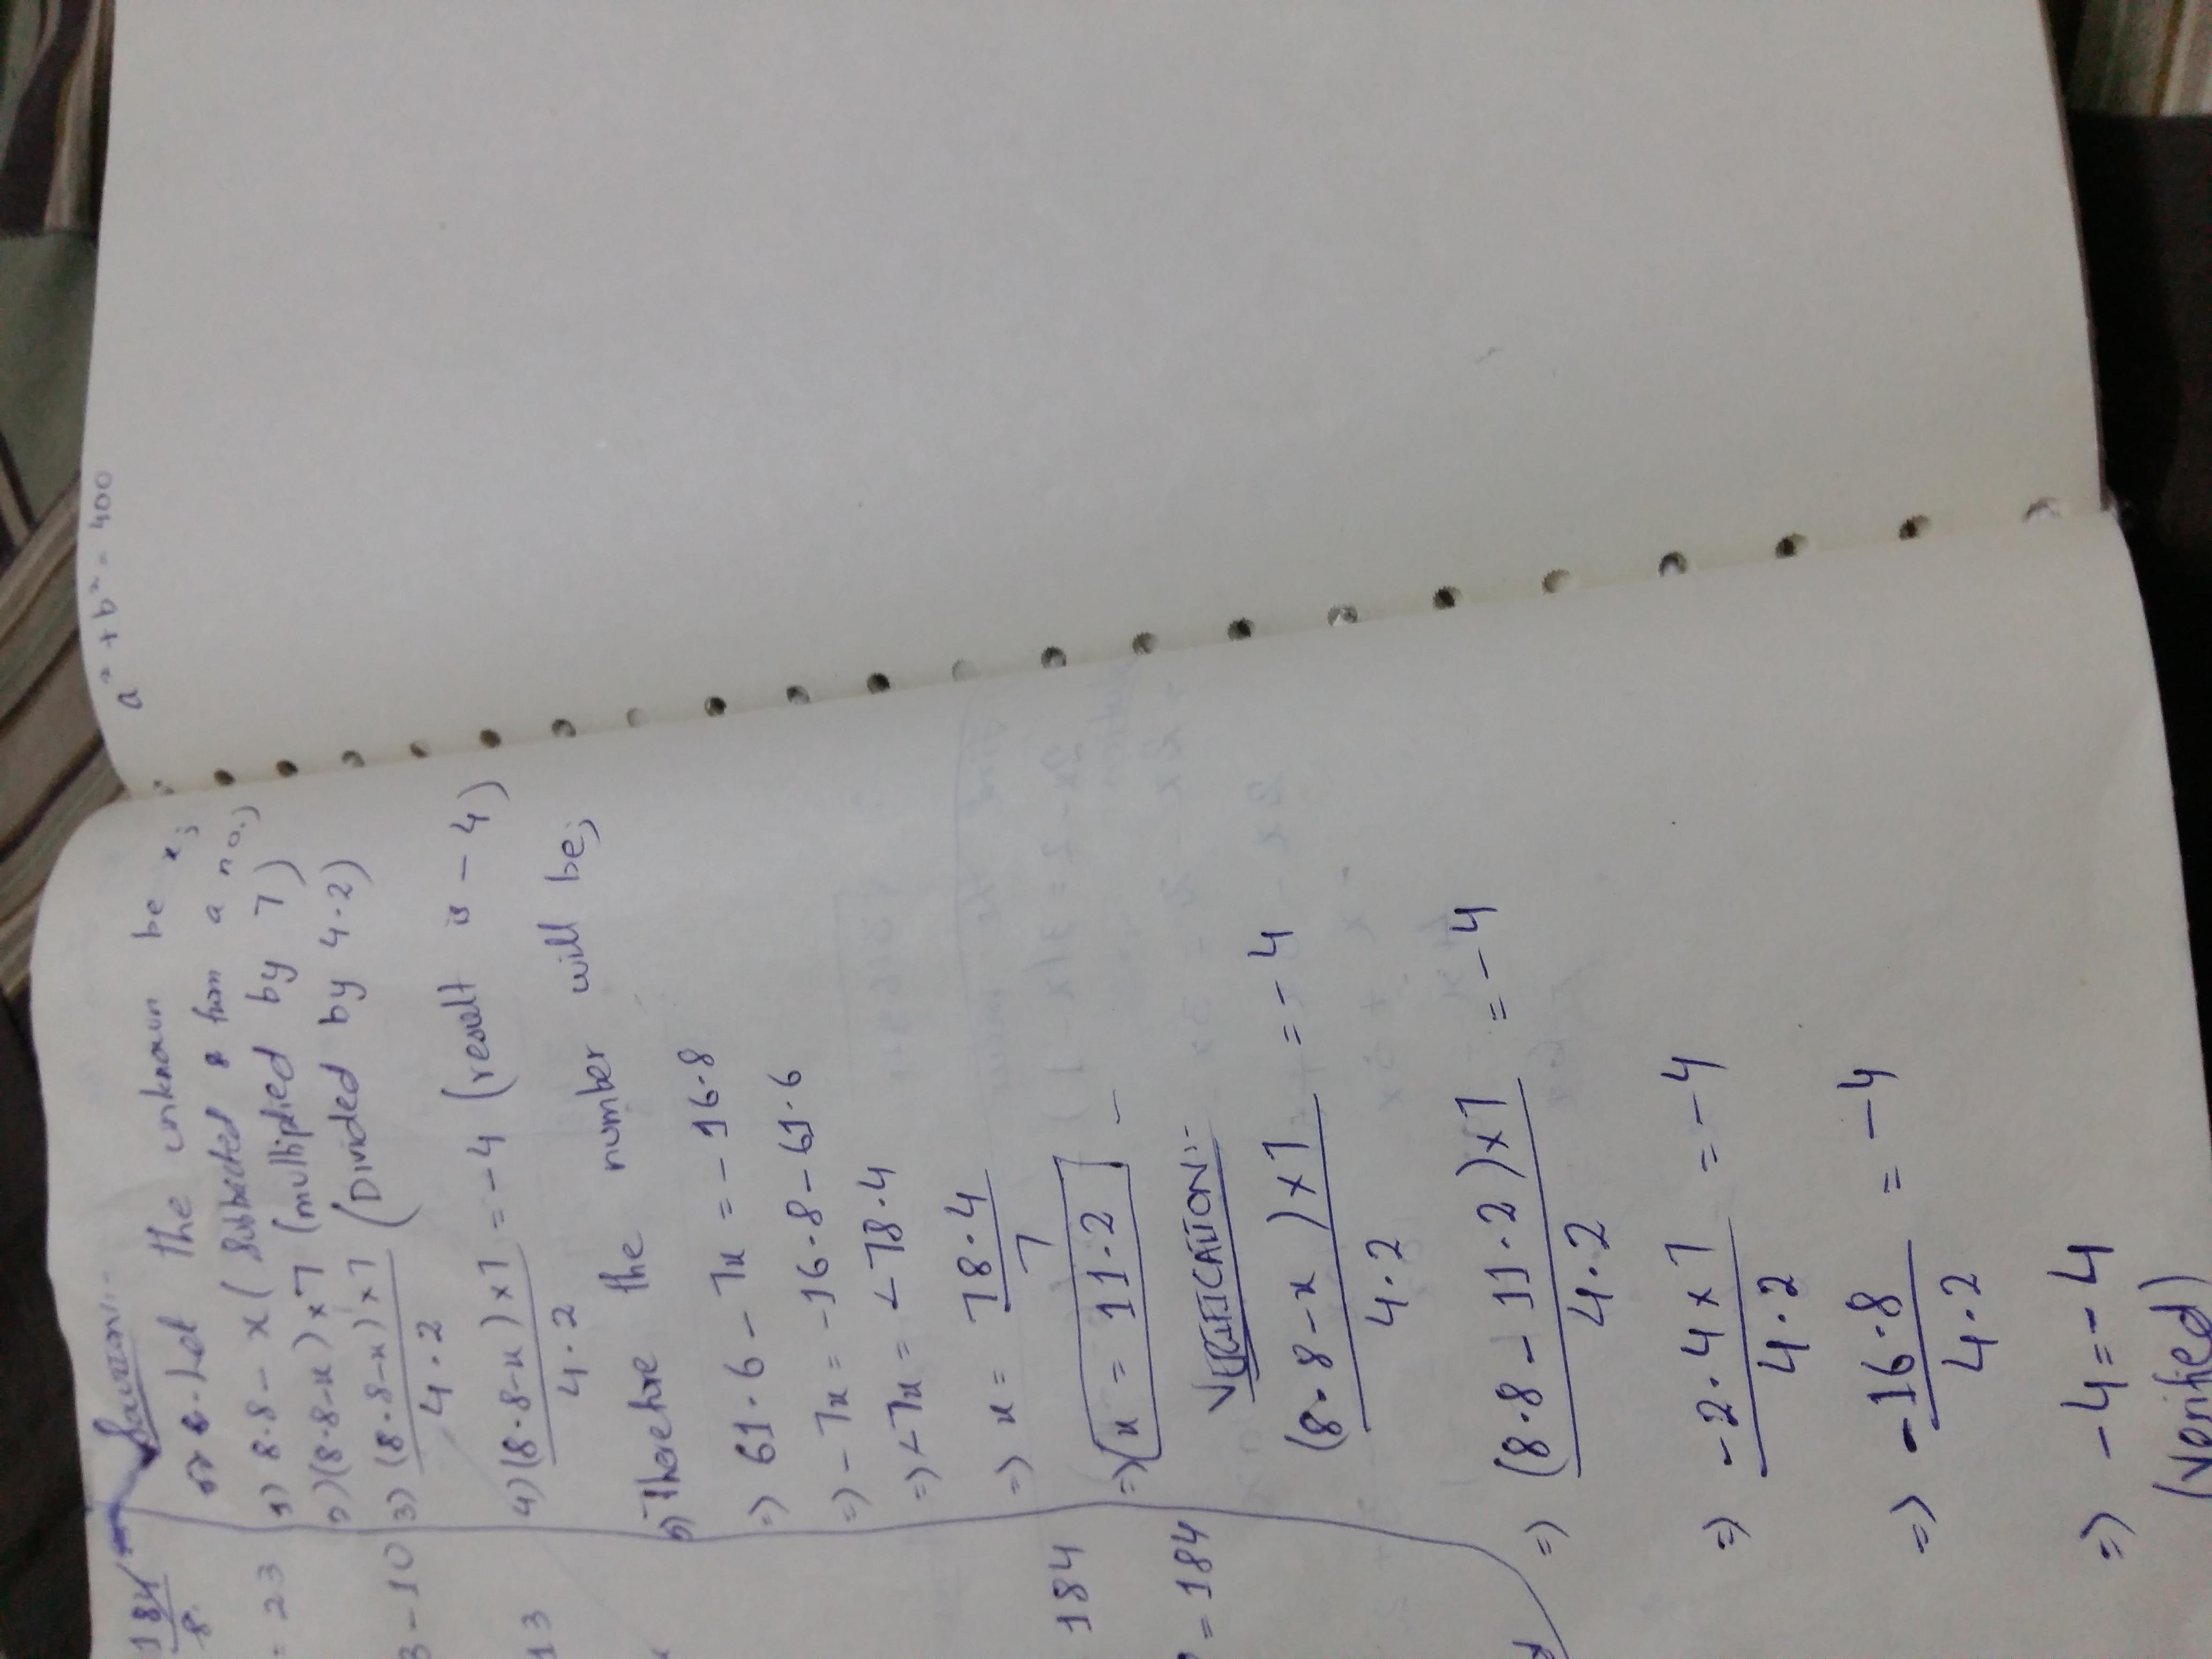 a² + b² = 400
184
8
= 23
3 - 10
13
184
= 184
Let the unknown be x;
1) 8.8 - x (Subtracted from a no.)
2) (8.8-x) × 7 (multiplied by 7)
3) (8.8-x) × 7 (Divided by 4.2)
4.2
4) (8.8-x) × 7 = -4 (result is -4)
4.2
5) Therefore the number will be;
=) 61.6 - 7x = -16.8
=) -7x = -16.8 - 61.6
=) -7x = -78.4
=) x = 78.4
7
=) x = 11.2
VERIFICATION:-
(8.8 - x) × 7 = -4
4.2
=) (8.8 - 11.2) × 7 = -4
4.2
=) -2.4 × 7 = -4
4.2
=) -16.8 = -4
4.2
=) -4 = -4
(Verified)